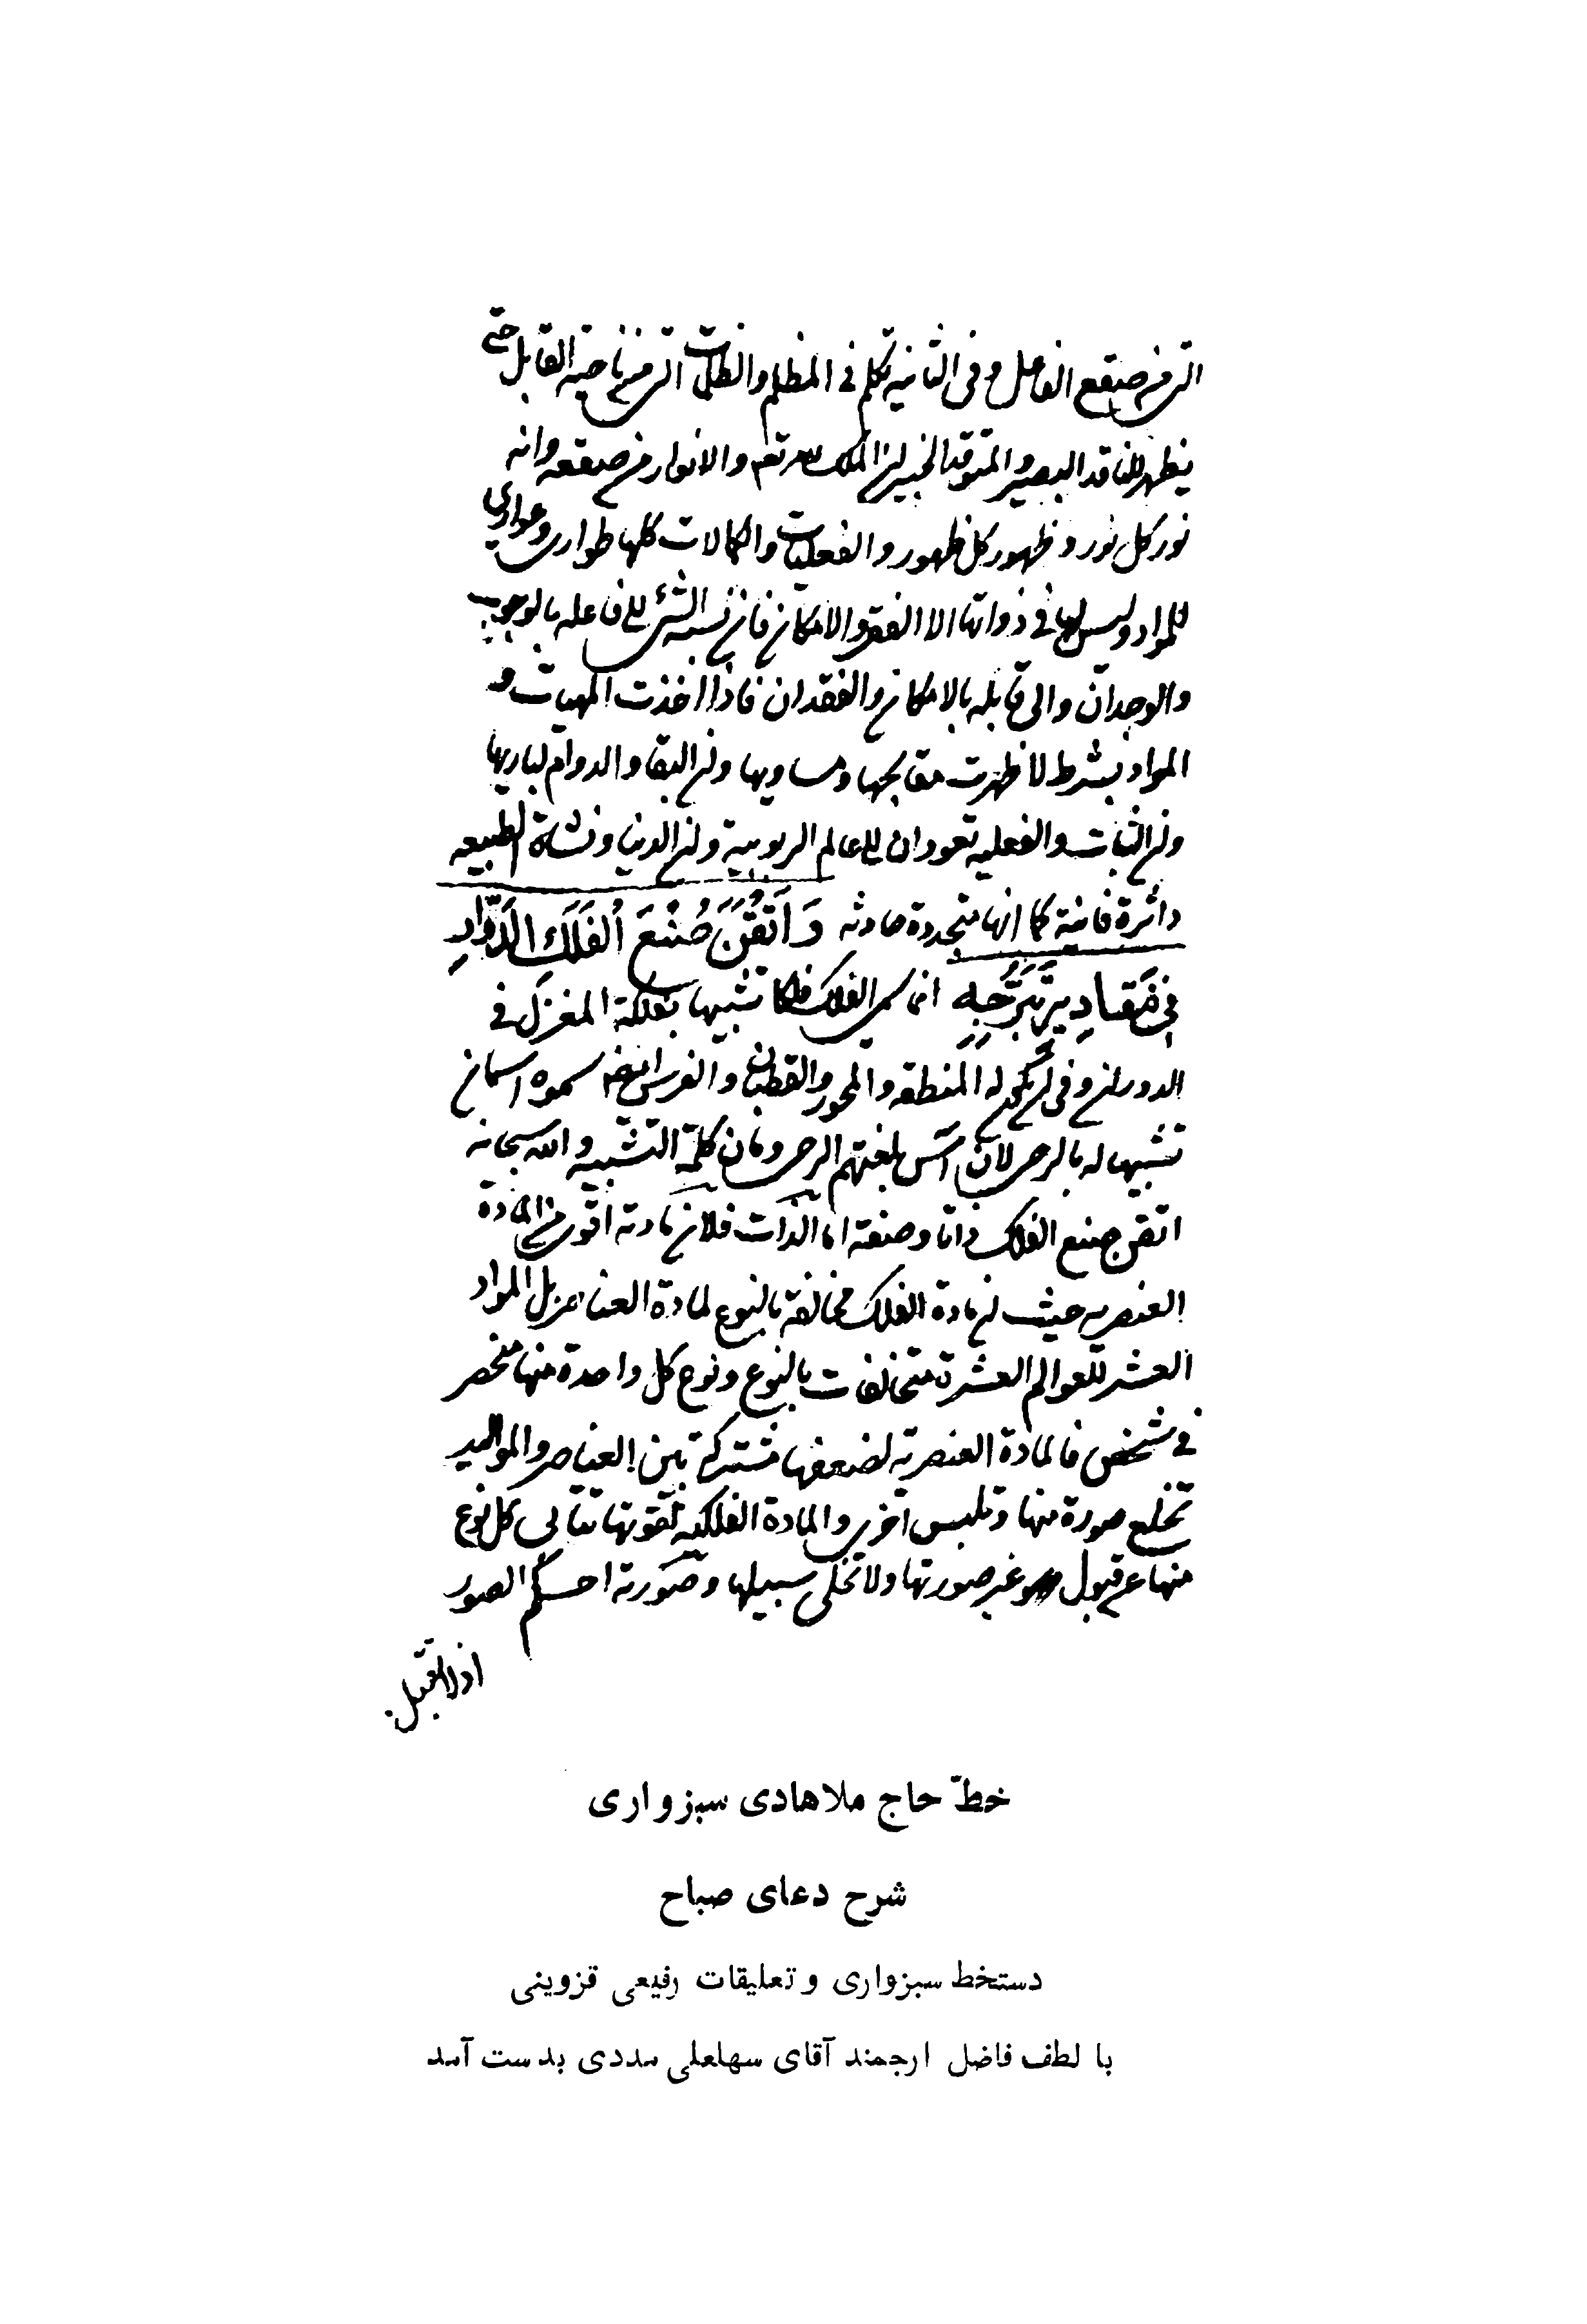 التی من صقع الفاعل و فی الثانیه تکلم فی المظلم و الظلمات التی من ناحیه القابل حتی
یظهر للناقد البصیر و المتوقد الخبیر ان الملک لله تعم و الانوار من صقعه و انه
نور کل نور و ظهور کل ظهور و الفعلیات و الکمالات کلها طواری و عواری
للمواد و لیس لها فی ذواتها الا الفقر و الامکان فان نسبه الشیء الی فاعله بالوجوب
و الوجدان و الی قابله بالامکان و الفقدان فاذا اخذت المهیات و
المواد بشرط لا ظهرت مقابحها و مساویها و ان البقا و الدوام لباریها
و ان الثبات و الفعلیه تعودان الی عالم الربوبیة و ان الدنیا و نشاة الطبیعه
دائرة فانیة کما انها متجددة حادثه وَ اَتقَنَ صُنعَ الفَلَکِ الدَوّارِ
فِی مَقادِیرِ تَبَرُّجِهِ انما سمی الفلک فلکا تشبیها بفلکة المغزل فی
الدوران و فی ان یکون له المنطقه و المحور و القطبان و الفرس ایضا سموه اسمان
تشبیها له بالرحی لان آس بلغتهم الرحی و مان کلمة التشبیه و الله سبحانه
اتقن صنع الفلک ذاتا و صفة اما الذات فلان مادته اقوی من المادة
العنصریه حیث ان مادة الفلک مخالفة بالنوع لمادة العناصر بل المواد
العشر للعوالم العشرة متخالفات بالنوع و نوع کل واحدة منها منحصر
فی شخص فالمادة العنصریة لضعفها مشترکة بین العناصر و الموالید
تخلع صورة منها و تلبس اخری و المادة الفلکیه لقوتها تتابی کل نوع
منها عن قبول غیر صورتها و لا تخلی سبیلها و صورته احکم الصور
اذ لا تقبل
خطّ حاج ملاهادی سبزواری
شرح دعای صباح
دستخط سبزواری و تعلیقات رفیعی قزوینی
با لطف فاضل ارجمند آقای سهلعلی مددی بدست آمد